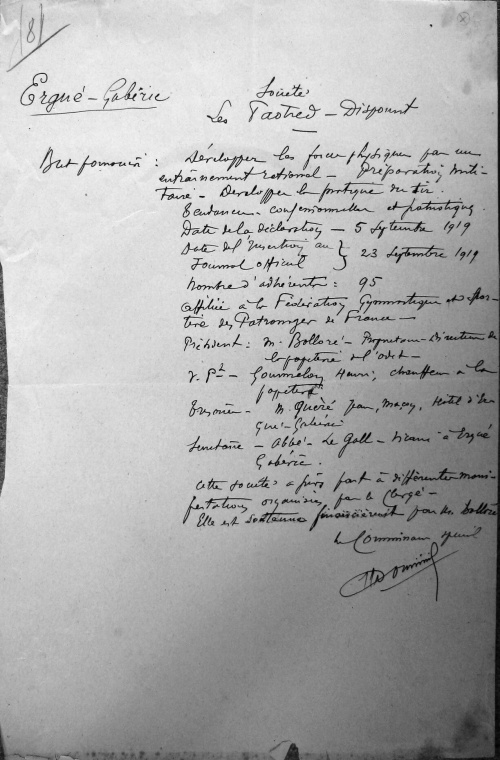 181
Société
Ergué-Gabéric
Les Paotred-Dispount
But poursuivi : Développer les forces physiques par un
entraînement rationnel - Préparation mili-
taire - Développer la pratique du tir.
Tendances - confessionnelles et patriotiques.
Date de la déclaration - 5 Septembre 1919
Date de l'insertion au
Journal officiel } 23 Septembre 1919
Nombre d'adhérents : 95
Affiliée à la Fédération Gymnastique et Spor-
tive des Patronages de France -
Président : M. Bolloré - Propriétaire-Directeur de
la papeterie de l'Odet -
V. Pt - Gourmelon Henri, chauffeur à la
papeterie
Trésorier - M. Quéré Jean, Maçon, Hôtel d'Er-
gué-Gabéric
Secrétaire - Abbé - Le Gall - vicaire à Ergué
Gabéric.
Cette société a pris part à différentes mani-
festations organisées par le Clergé -
Elle est soutenue financièrement par M. Bolloré
Le Commissaire spécial